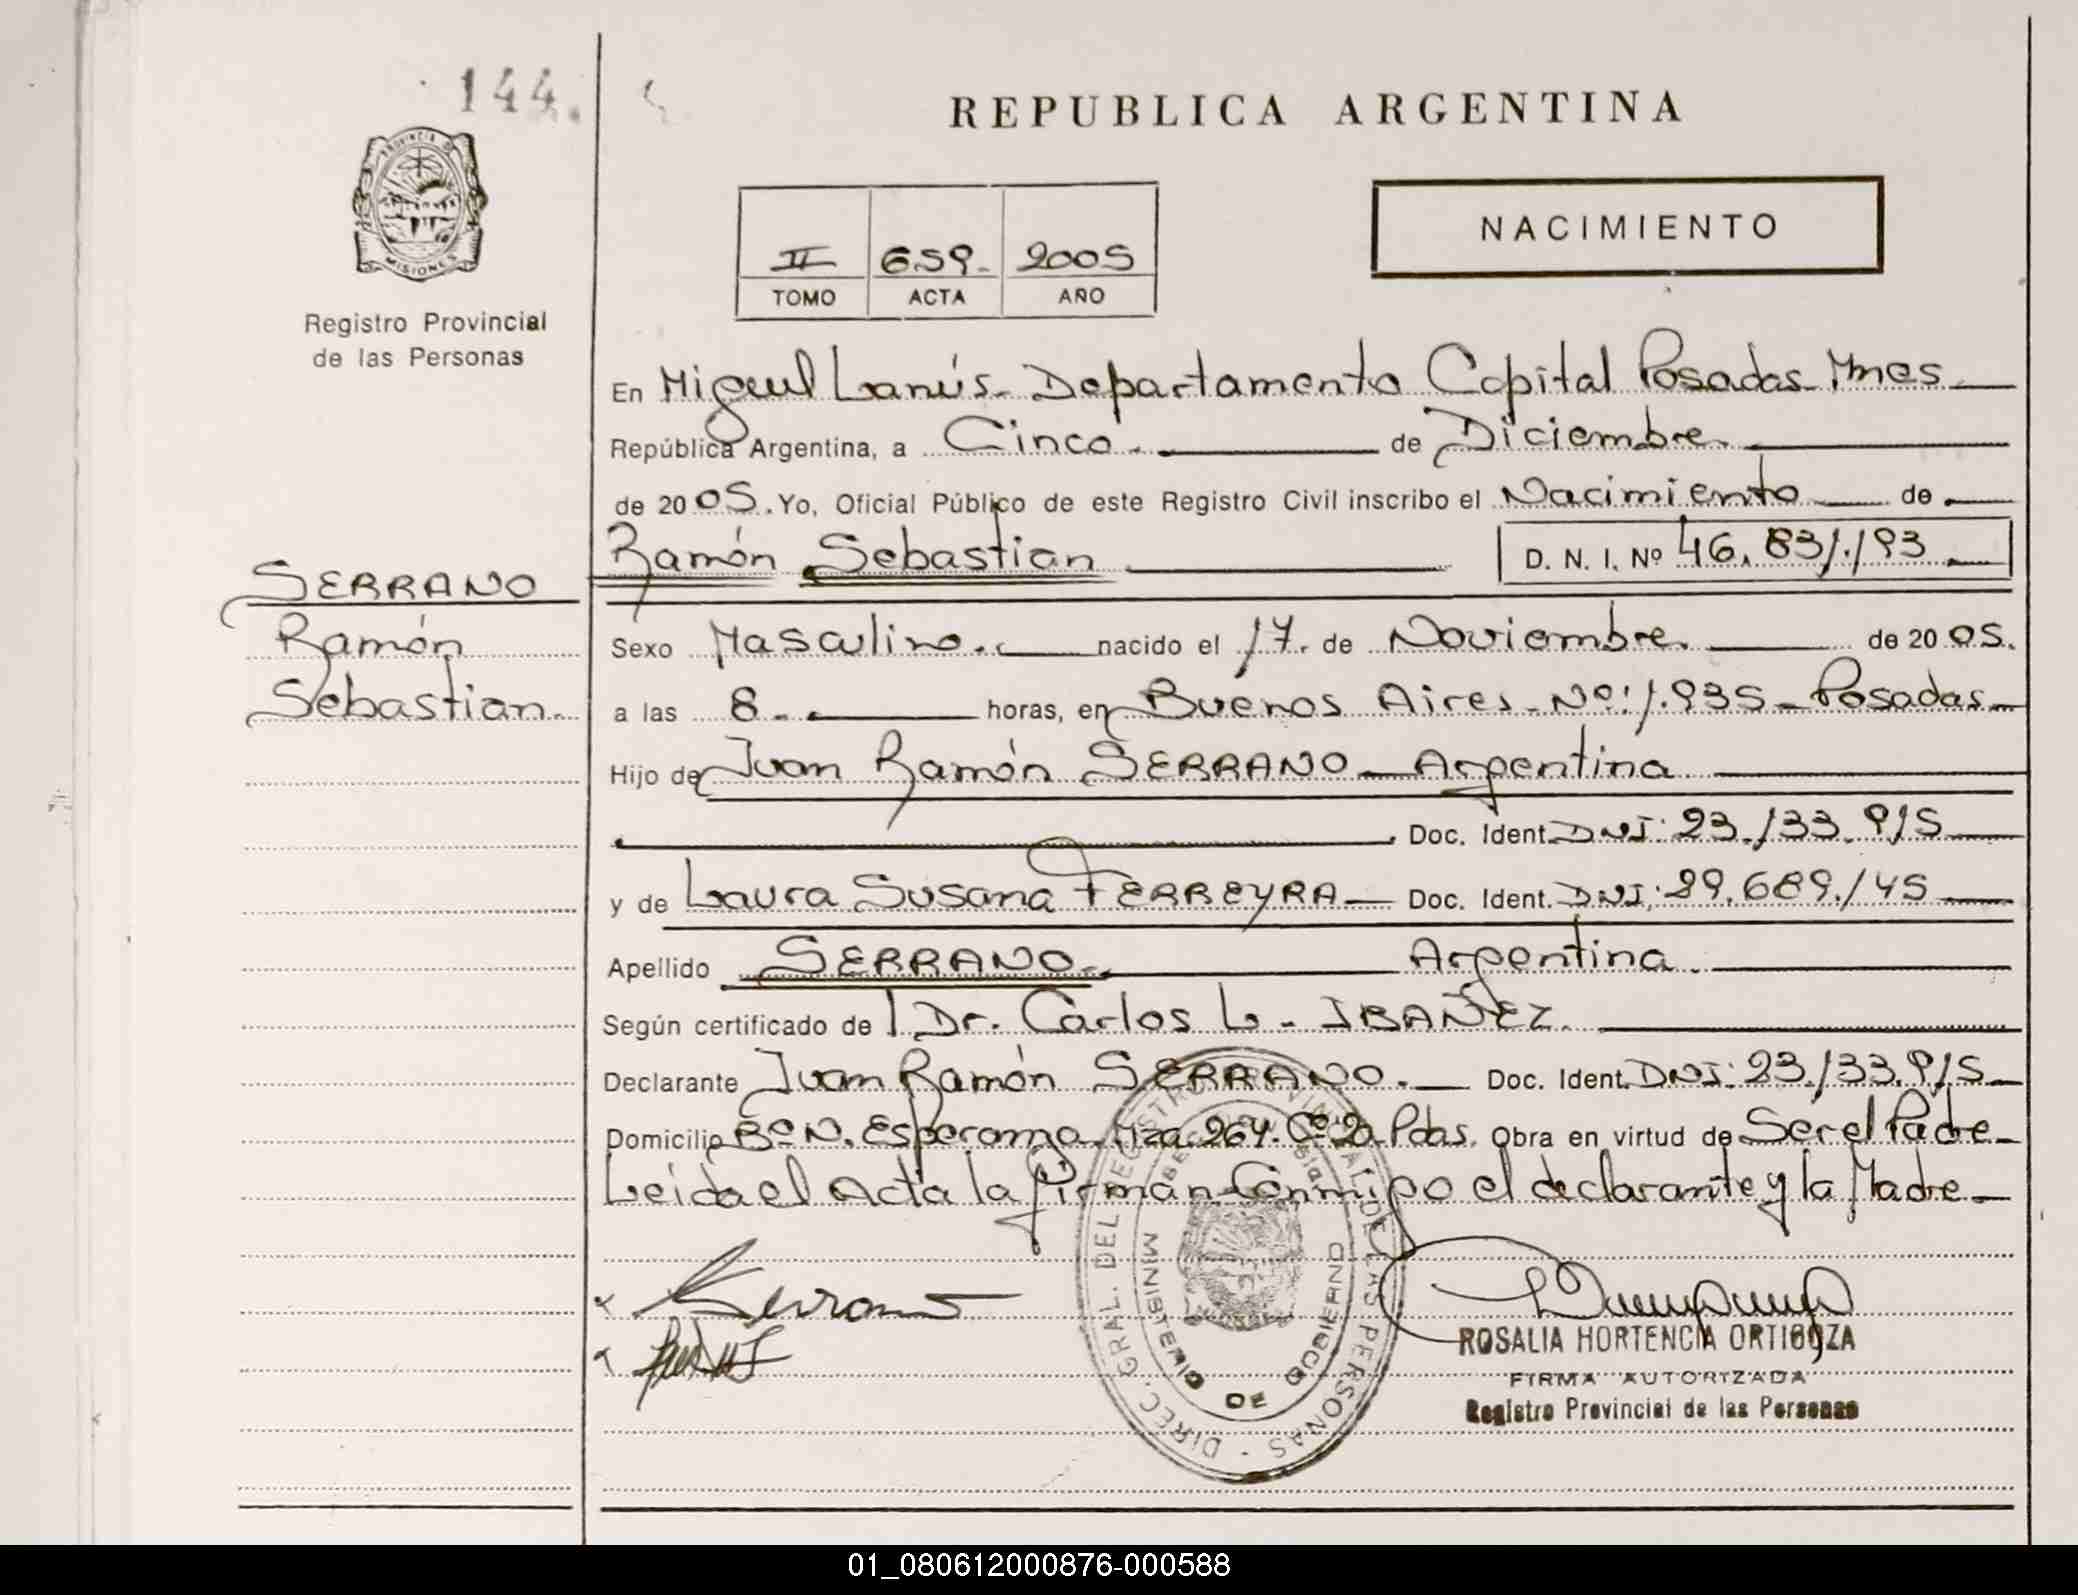 144.
PROVINCIA DE
MISIONES
Registro Provincial
de las Personas
REPUBLICA ARGENTINA
NACIMIENTO
II 659. 2005
TOMO ACTA AÑO
En Miguel Lanús - Departamento Capital Posadas Mnes
República Argentina, a Cinco. de Diciembre.
de 2005. Yo, Oficial Público de este Registro Civil inscribo el Nacimiento de
Ramón Sebastian D. N. I. Nº 46.831.193
SERRANO
Ramón
Sebastian.
Sexo Masculino. nacido el 17. de Noviembre. de 2005.
a las 8. horas, en Buenos Aires - Nº: 1.935 - Posadas
Hijo de Juan Ramón SERRANO - Argentina
Doc. Ident. DNI: 23.133.915
y de Laura Susana FERREYRA - Doc. Ident. DNI: 29.689.145
Apellido SERRANO. Argentina.
Según certificado de l Dr. Carlos L. IBAÑEZ.
Declarante Juan Ramón SERRANO. Doc. Ident. DNI: 23.133.915
Domicilio Bº N. Esperanza. Mza. 264. Cº 20 Pdas. Obra en virtud de Ser el Padre
Leída el Acta la firman Conmigo el declarante y la Madre
Serrano
ROSALIA HORTENCIA ORTIGOZA
FIRMA AUTORIZADA
Registro Provincial de las Personas
DIREC. GRAL. DEL REGISTRO PROVINCIAL DE LAS PERSONAS
MINISTERIO DE GOBIERNO
01_080612000876-000588